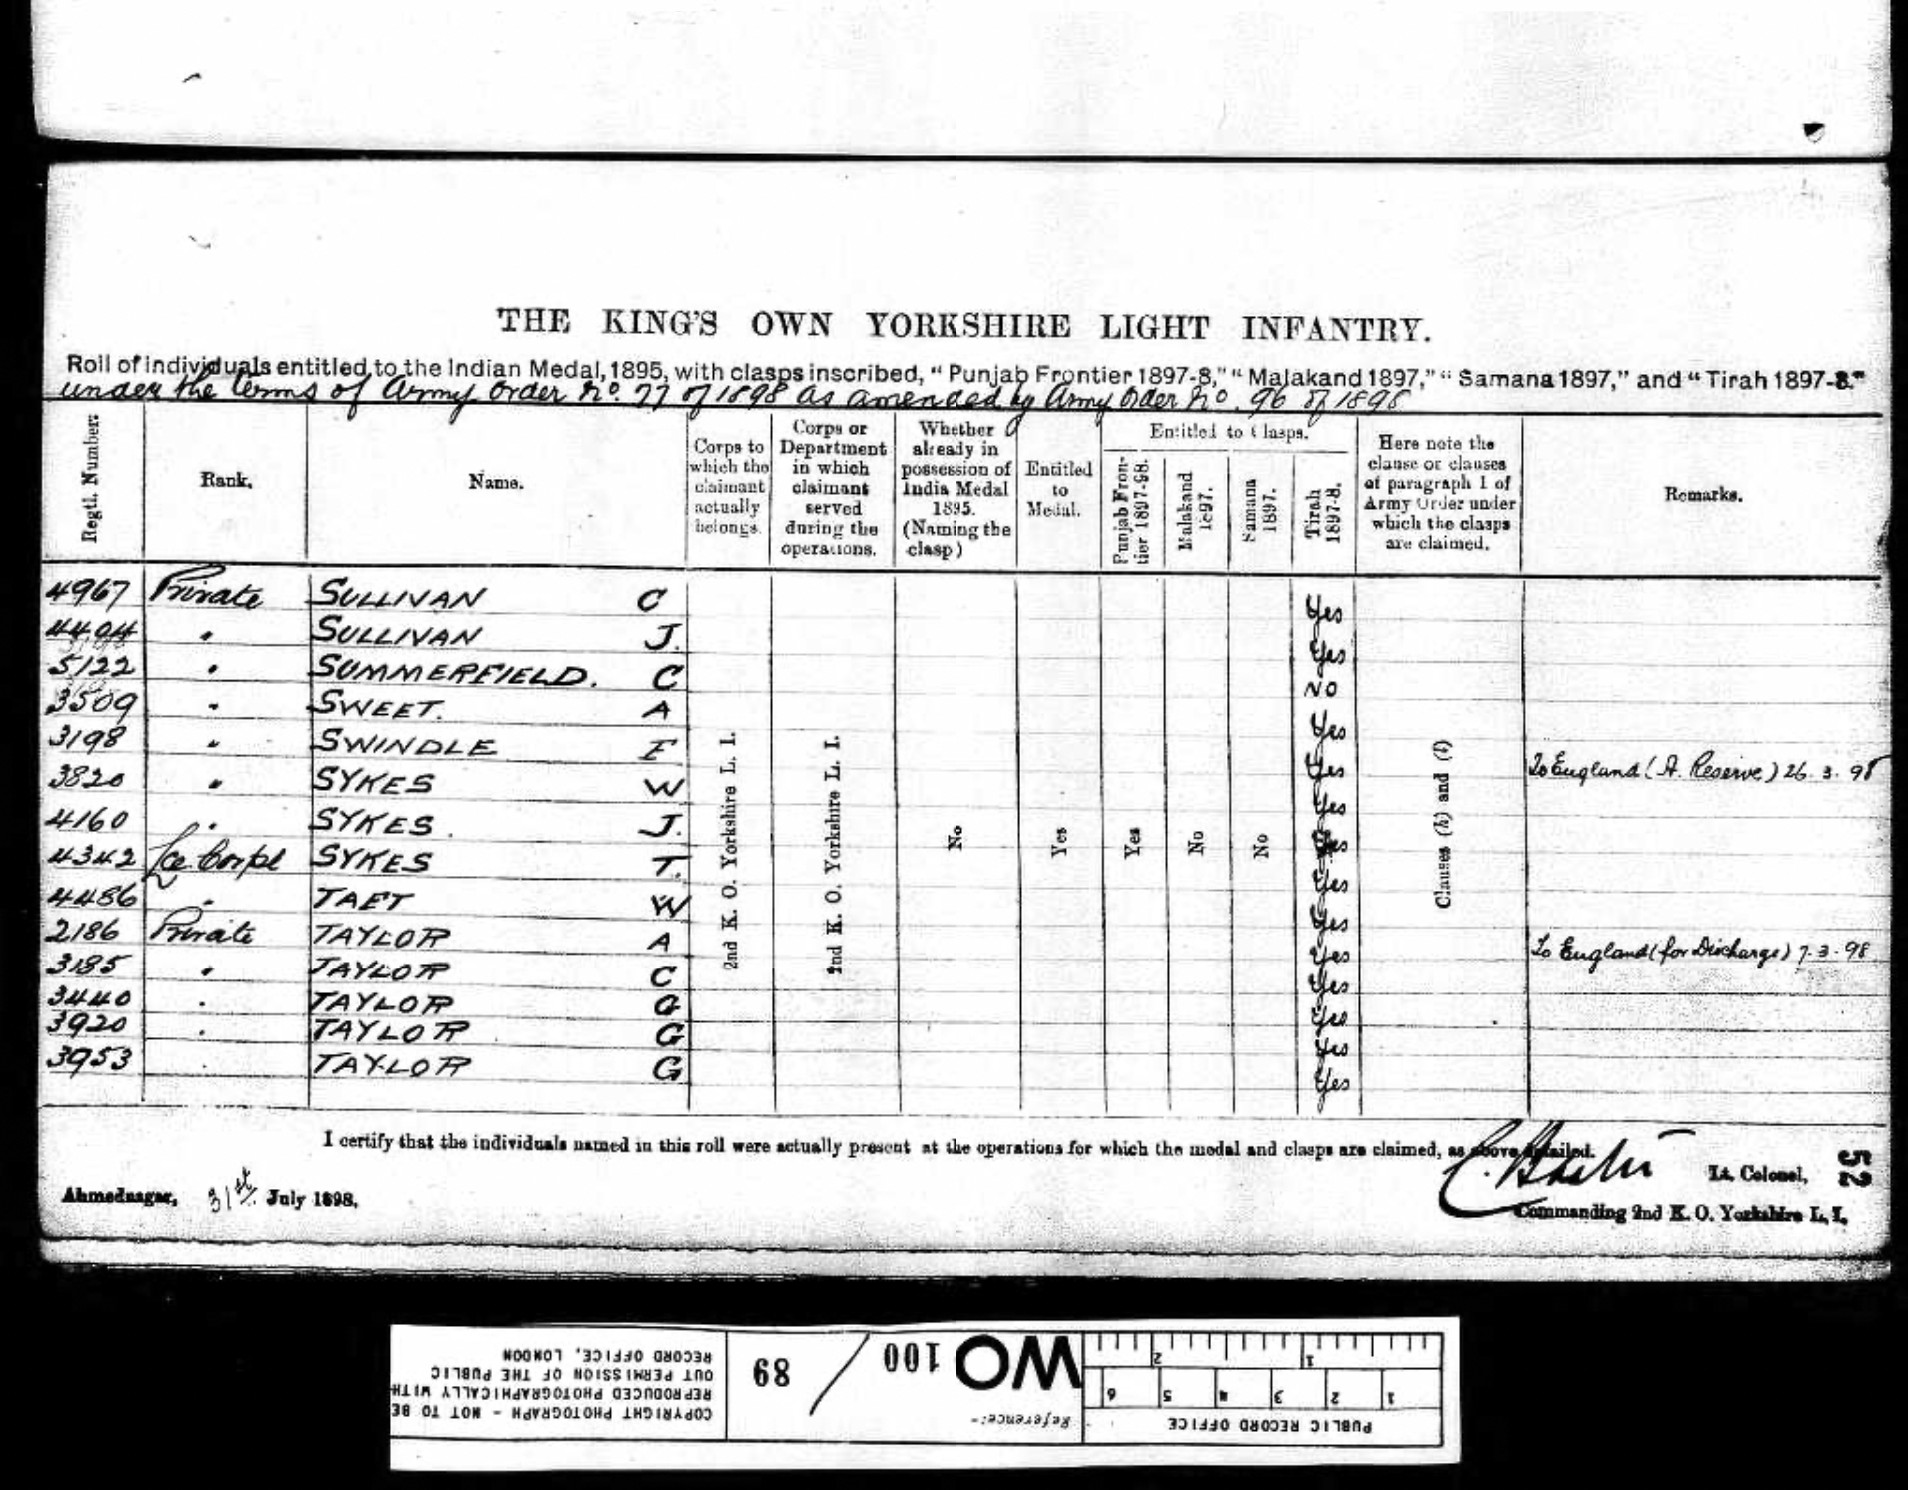 THE KING'S OWN YORKSHIRE LIGHT INFANTRY.
Roll of individuals entitled to the Indian Medal, 1895, with clasps inscribed, “Punjab Frontier 1897-8,” “Malakand 1897,” “Samana 1897,” and “Tirah 1897-8.”
under the terms of Army order No. 77 of 1898 as amended by Army Order No. 96 of 1898
Regtl. Number:
Rank.
Name.
Corps to which the claimant actually belongs.
Corps or Department in which claimant served during the operations.
Whether already in possession of India Medal 1895. (Naming the clasp)
Entitled to Medal.
Entitled to Clasps.
Punjab Frontier 1897-98.
Malakand 1897.
Samana 1897.
Tirah 1897-8.
Here note the clause or clauses of paragraph 1 of Army Order under which the clasps are claimed.
Remarks.
4967 Private SULLIVAN C Yes
4494 " SULLIVAN J. Yes
5122 " SUMMERFIELD. C NO
3509 " SWEET. A Yes
3198 " SWINDLE F Yes To England (A. Reserve) 26.3.98
3820 " SYKES W Yes
4160 " SYKES. J. Yes
4342 Lce Corpl SYKES T. Yes
4486 " TAFT W Yes
2186 Private TAYLOR A Yes To England (for Discharge) 7.3.98
3185 " TAYLOR C Yes
3440 " TAYLOR G Yes
3920 " TAYLOR G Yes
3953 " TAYLOR G Yes
2nd K. O. Yorkshire L. I.
2nd K. O. Yorkshire L. I.
No
Yes
Yes
No
No
Clauses (h) and (l)
I certify that the individuals named in this roll were actually present at the operations for which the medal and clasps are claimed, as above detailed.
Lt. Colonel,
52
Ahmednagar, 31st July 1898.
Commanding 2nd K. O. Yorkshire L. I.
PUBLIC RECORD OFFICE
1 2 3 4 5 6
1 2
Reference:-
WO 100 / 89
COPYRIGHT PHOTOGRAPH - NOT TO BE
REPRODUCED PHOTOGRAPHICALLY WITH-
OUT PERMISSION OF THE PUBLIC
RECORD OFFICE, LONDON